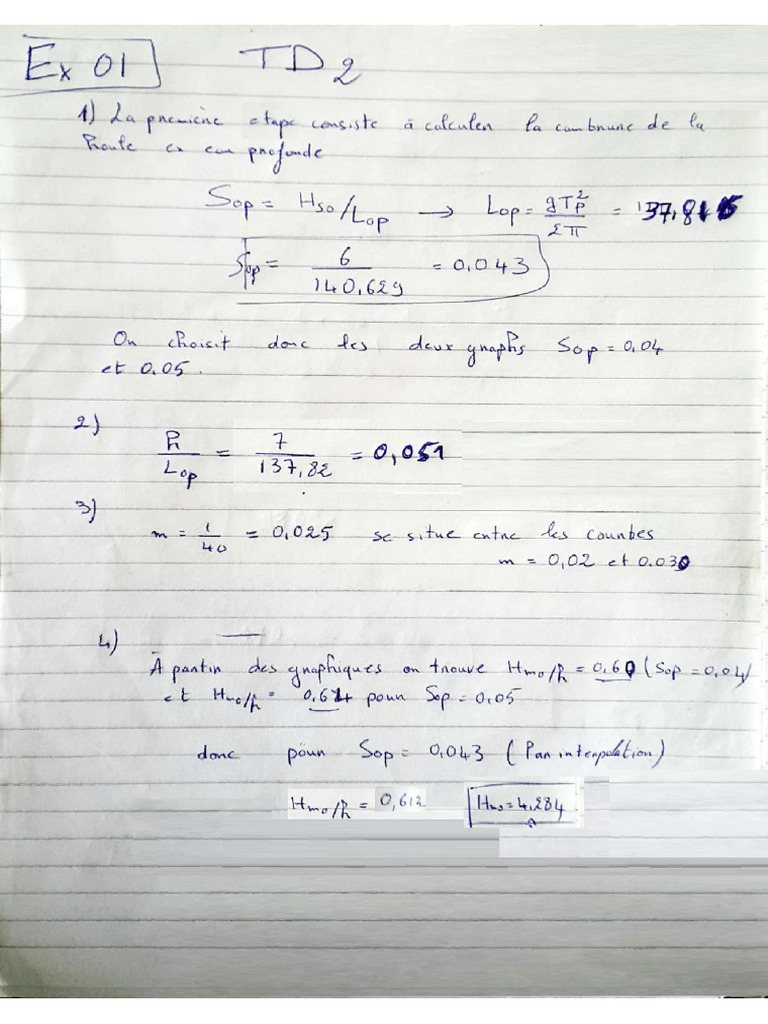 Ex 01 TD2
1) La première etape consiste à calculer la cambrure de la
Houle en eau profonde
Sop = Hso/Lop → Lop = gTp²/2π = 137,815
Sop = 6/140,629 = 0,043
On choisit donc les deux graphs Sop = 0,04
et 0,05.
2)
h/Lop = 7/137,82 = 0,051
3)
m = 1/40 = 0,025 se situe entre les courbes
m = 0,02 et 0.030
4)
À partir des graphiques on trouve Hmo/h = 0,60 (Sop = 0,04)
et Hmo/h = pour Sop = 0,05
donc pour Sop = 0,043 (Par interpolation)
Hmo/h = 0,612 Hmo = 4,284